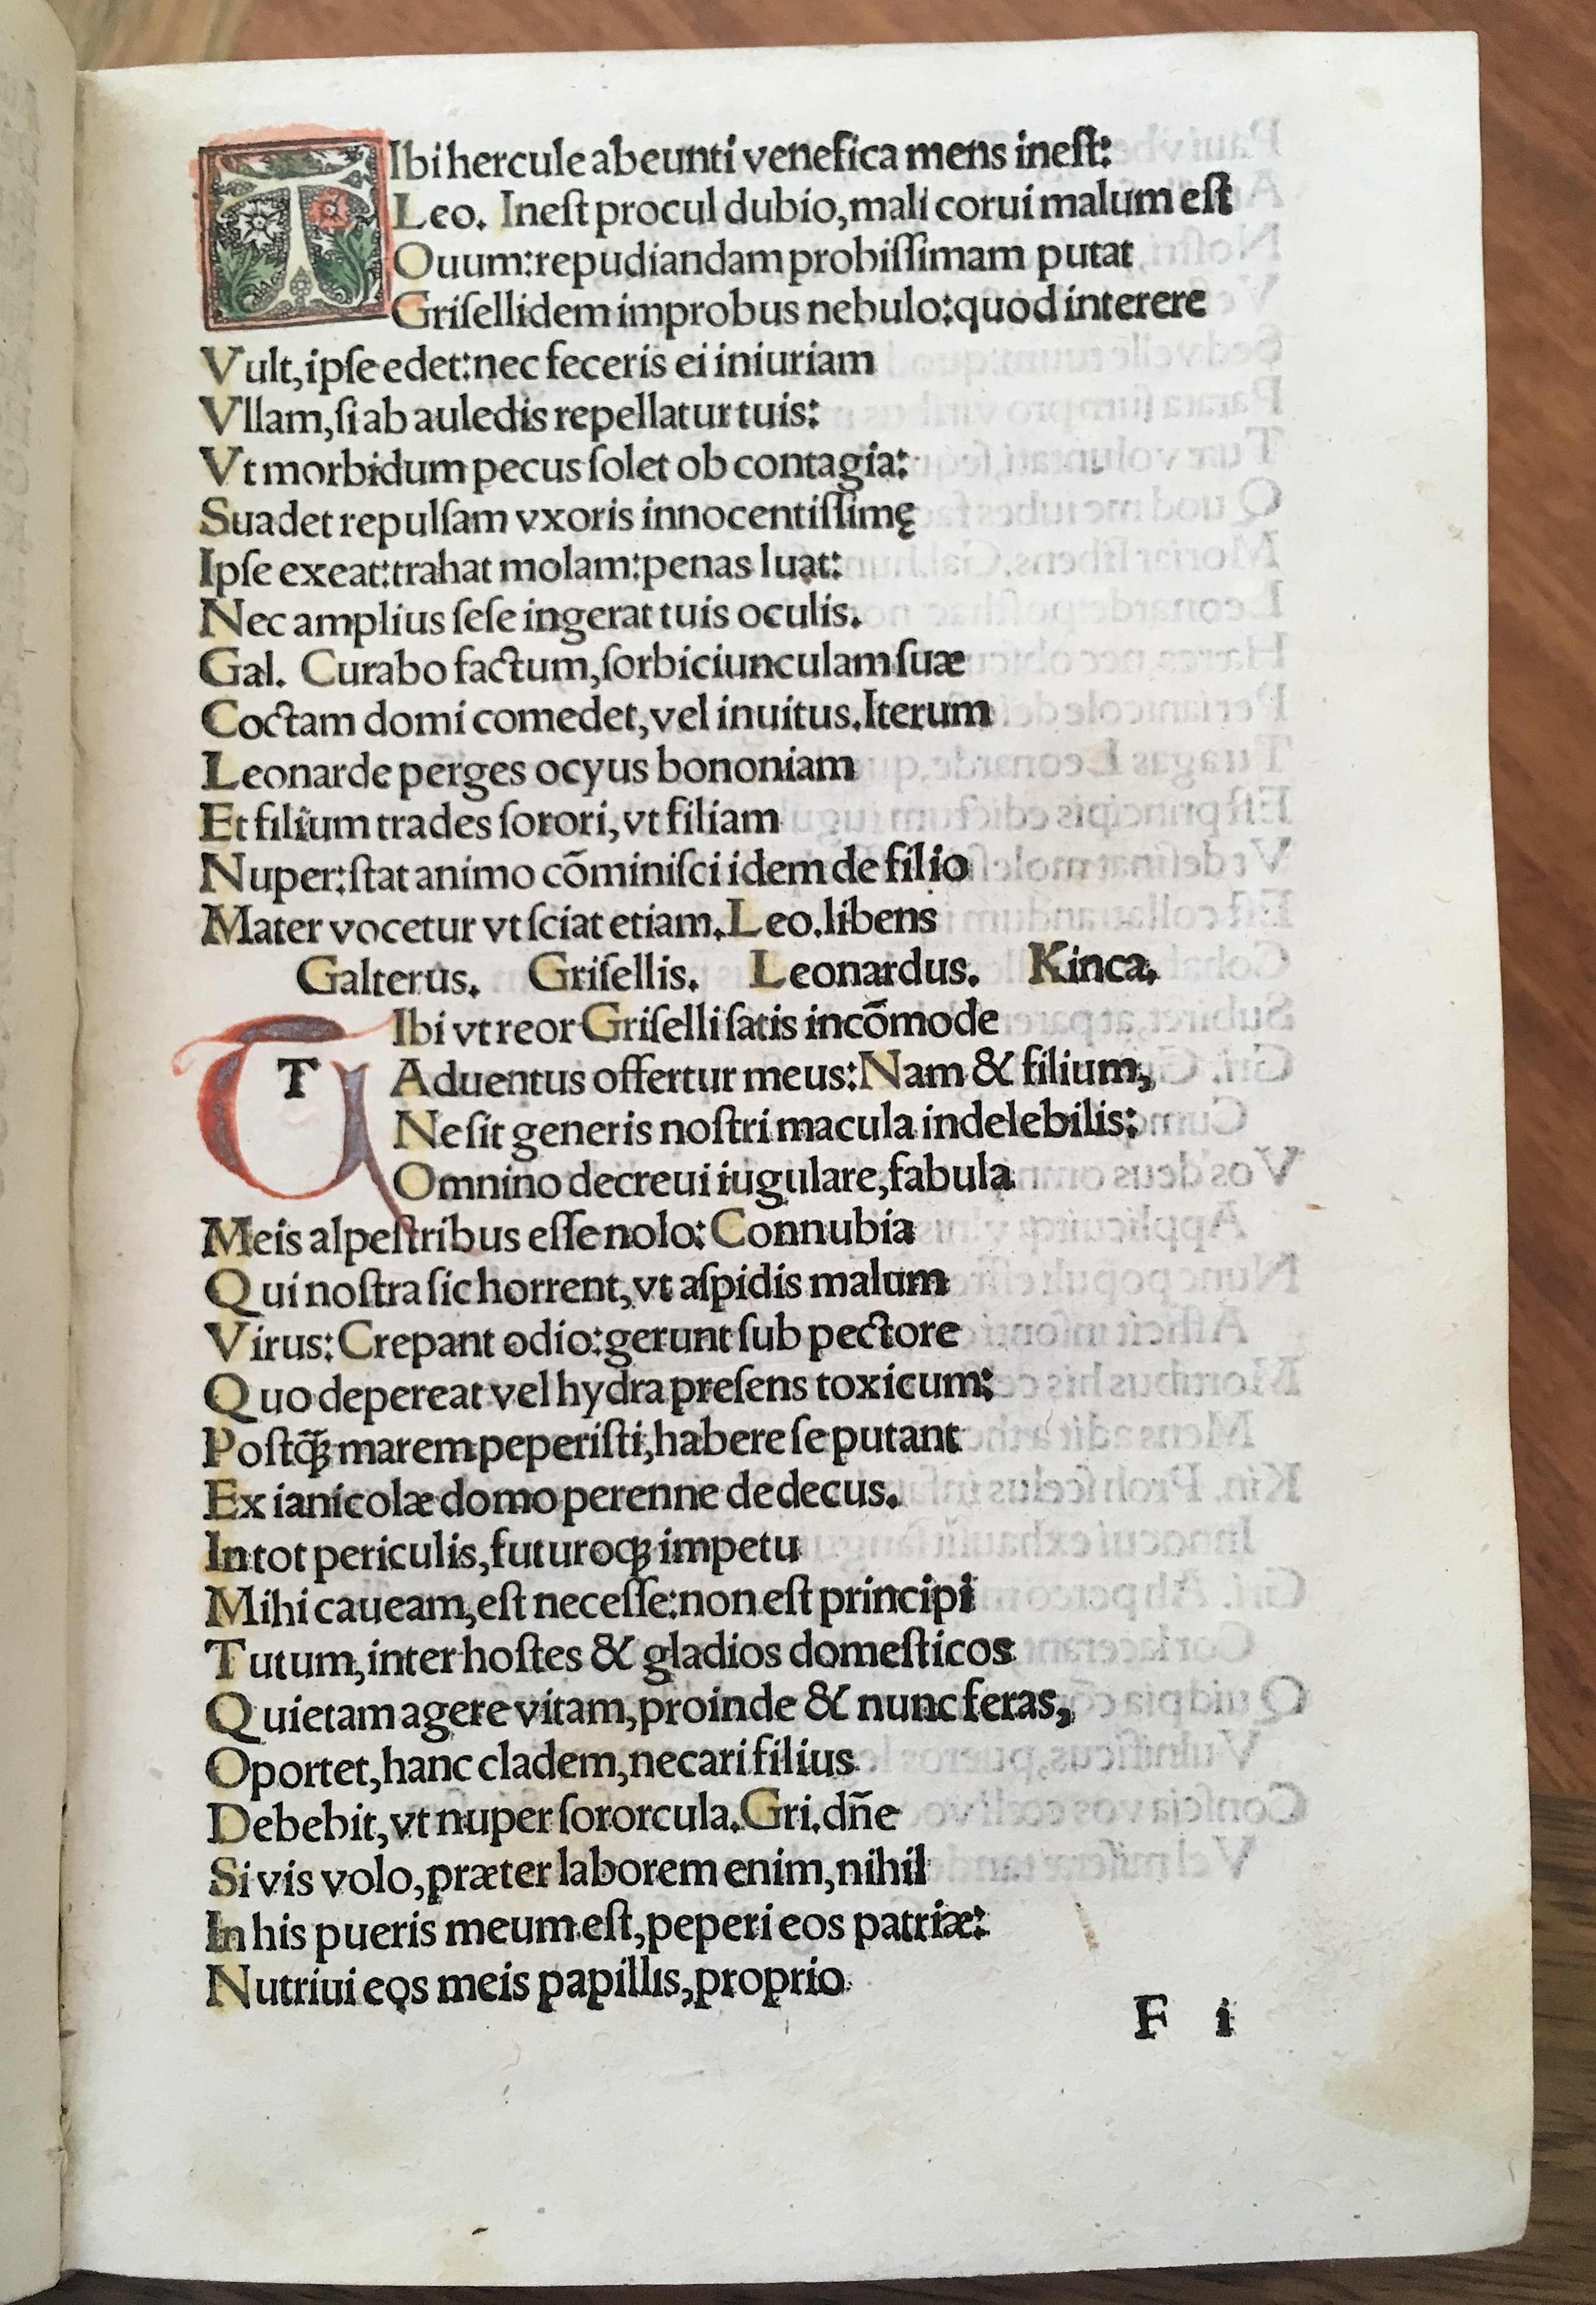 TIbi hercule abeunti venefica mens ineſt:
Leo. Ineſt procul dubio, mali corui malum eſt
Ouum: repudiandam probiſſimam putat
Griſellidem improbus nebulo: quod interere
Vult, ipſe edet: nec feceris ei iniuriam
Vllam, ſi ab auledis repellatur tuis:
Vt morbidum pecus ſolet ob contagia:
Suadet repulſam vxoris innocentiſſimę
Ipſe exeat: trahat molam: penas luat:
Nec amplius ſeſe ingerat tuis oculis.
Gal. Curabo factum, ſorbiciunculam ſuæ
Coctam domi comedet, vel inuitus. Iterum
Leonarde perges ocyus bononiam
Et filium trades ſorori, vt filiam
Nuper: ſtat animo cōminiſci idem de filio
Mater vocetur vt ſciat etiam. Leo. libens
Galterus. Griſellis. Leonardus. Kinca.
TIbi vt reor Griſelli ſatis incōmode
Aduentus offertur meus: Nam & filium,
Ne ſit generis noſtri macula indelebilis:
Omnino decreui iugulare, fabula
Meis alpeſtribus eſſe nolo: Connubia
Qui noſtra ſic horrent, vt aſpidis malum
Virus: Crepant odio: gerunt ſub pectore
Quo depereat vel hydra preſens toxicum:
Poſtq̄ꝫ marem peperiſti, habere ſe putant
Ex ianicolæ domo perenne dedecus.
In tot periculis, futuroqꝫ impetu
Mihi caueam, eſt neceſſe: non eſt principi
Tutum, inter hoſtes & gladios domeſticos
Quietam agere vitam, proinde & nunc feras,
Oportet, hanc cladem, necari filius
Debebit, vt nuper ſororcula. Gri. dn̄e
Si vis volo, præter laborem enim, nihil
In his pueris meum eſt, peperi eos patriæ:
Nutriui eos meis papillis, proprio
F i